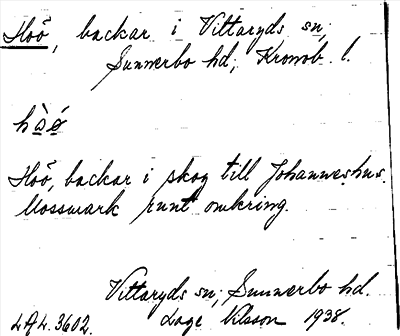 Hoö, backar i Vittaryds sn,
Sunnerbo hd; Kronob. l.
hɔ̀é
Hoö, backar i skog till Johanneshus.
Mossmark runt omkring.
Vittaryds sn; Sunnerbo hd.
LAL. 3602. Lage Nilsson 1938.